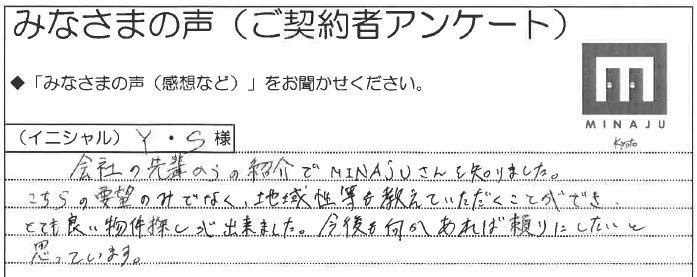 みなさまの声（ご契約者アンケート）
◆「みなさまの声（感想など）」をお聞かせください。
MINAJU
Kyoto
（イニシャル）Y・S様
会社の先輩からの紹介でMINAJUさんを知りました。
こちらの要望のみでなく、地域性等も教えていただくことができ、
とても良い物件探しが出来ました。今後も何かあれば頼りにしたいと
思っています。